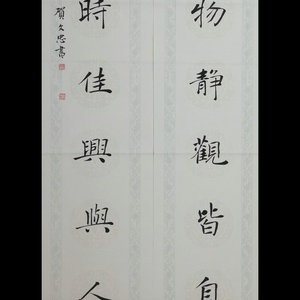 物靜觀皆自
時佳興與人
賀文忠書